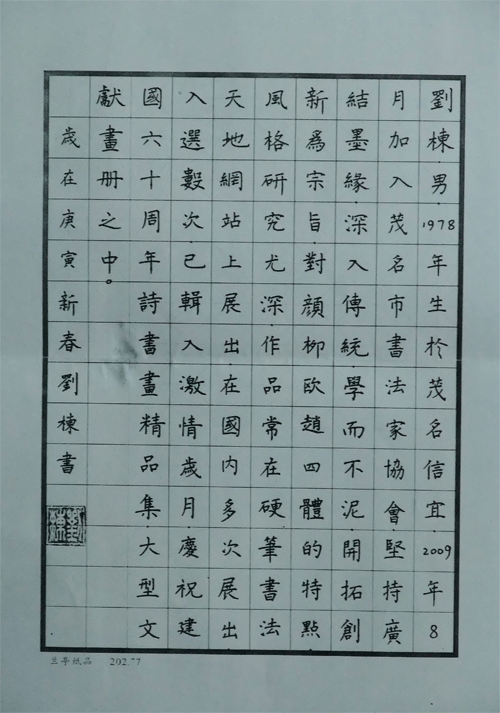 劉棟.男.1978年生於茂名信宜.2009年8
月加入茂名市書法家協會.堅持廣
結墨緣.深入傳統.學而不泥.開拓創
新爲宗旨.對顔柳歐趙四體的特點.
風格研究尤深.作品常在硬筆書法
天地網站上展出在國内多次展出
入選數次.已輯入激情歲月慶祝建
國六十周年詩書畫精品集大型文
獻畫册之中。
歲在庚寅新春劉棟書
202.77